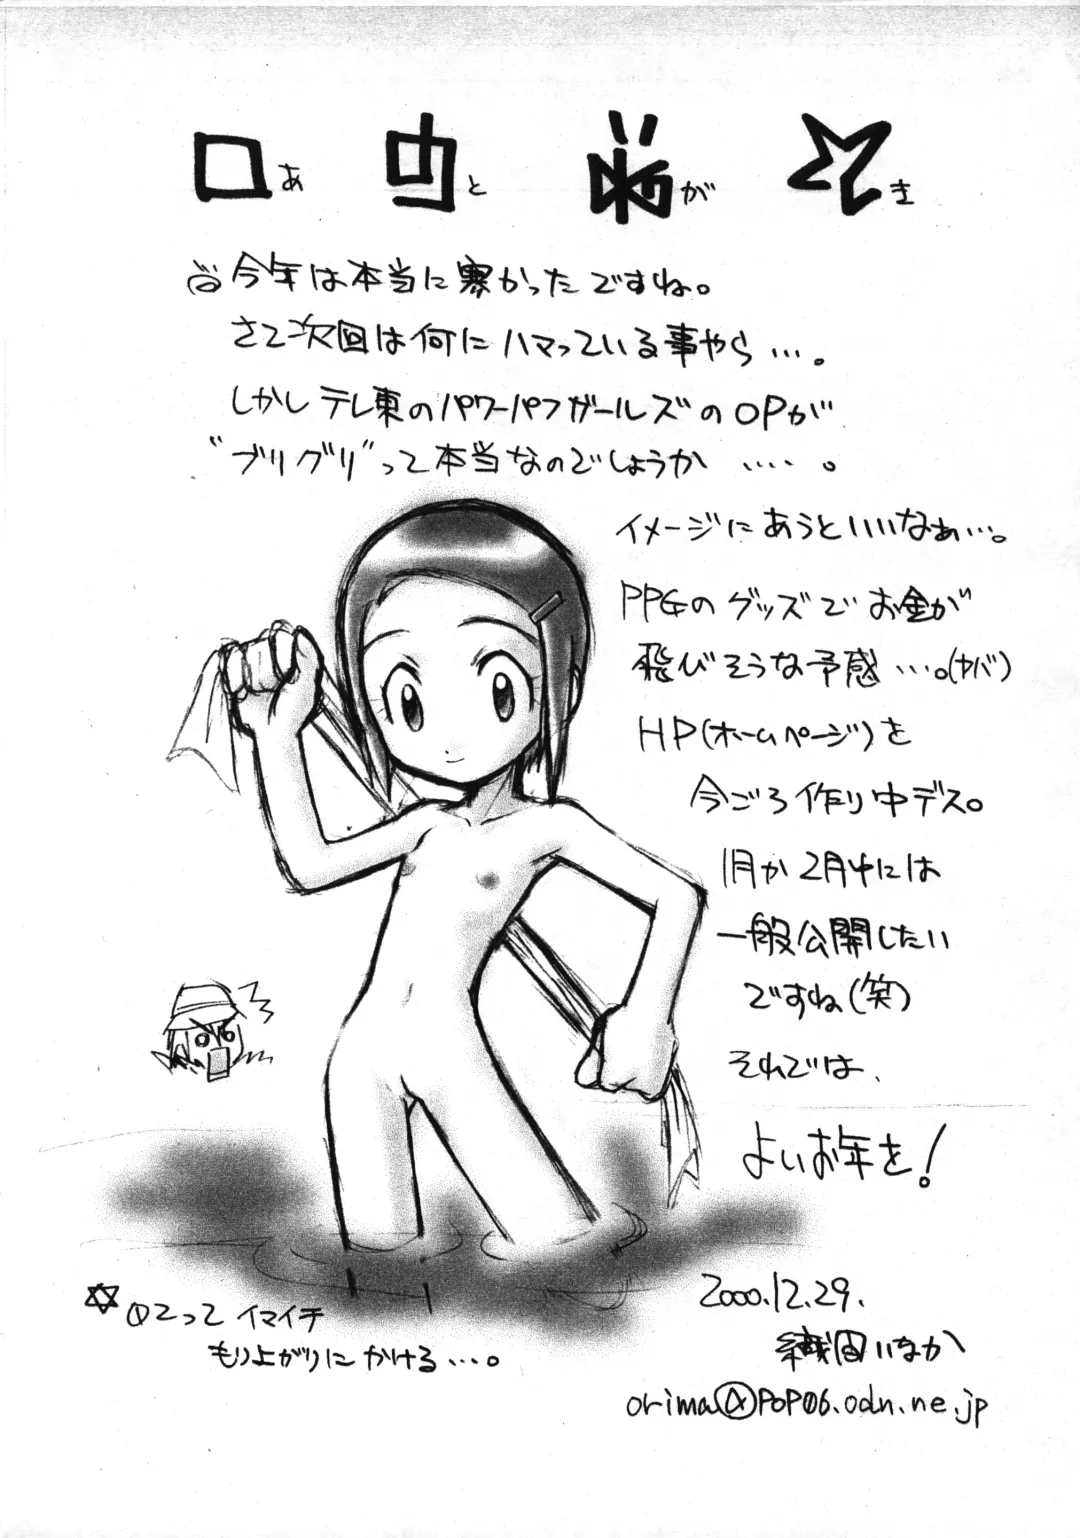 あとがき
今年は本当に寒かったですね。
さて次回は何にハマっている事やら…。
しかしテレ東のパワーパフガールズのOPが
"ブリグリ"って本当なのでしょうか‥‥。
イメージにあうといいなぁ…。
PPGのグッズでお金が
飛びそうな予感…。(ヤバ)
HP(ホームページ)を
今ごろ作り中デス。
1月か2月中には
一般公開したい
ですね(笑)
それでは、
よいお年を!
02って イマイチ
もり上がりにかける…。
2000.12.29.
織田いなか
orima@pop06.odn.ne.jp